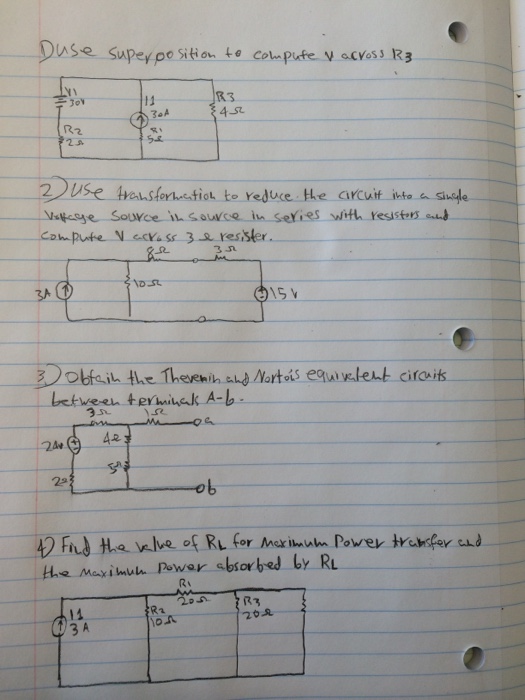 1) use superposition to compute V across R3
V1
30V
I1
30A
R3
4Ω
R2
2Ω
R1
5Ω
2) use transformation to reduce the circuit into a single
Voltage source in source in series with resistors and
compute V across 3 Ω resister.
8Ω
3Ω
3A
10Ω
15V
3) Obtain the Thevenin and Norton's equivalent circuits
between terminals A-b.
3Ω
1Ω
a
24v
4Ω
2Ω
5Ω
b
4) Find the value of RL for Maximum Power transfer and
the Maximum Power absorbed by RL
R1
20Ω
I1
3A
R2
10Ω
R3
20Ω